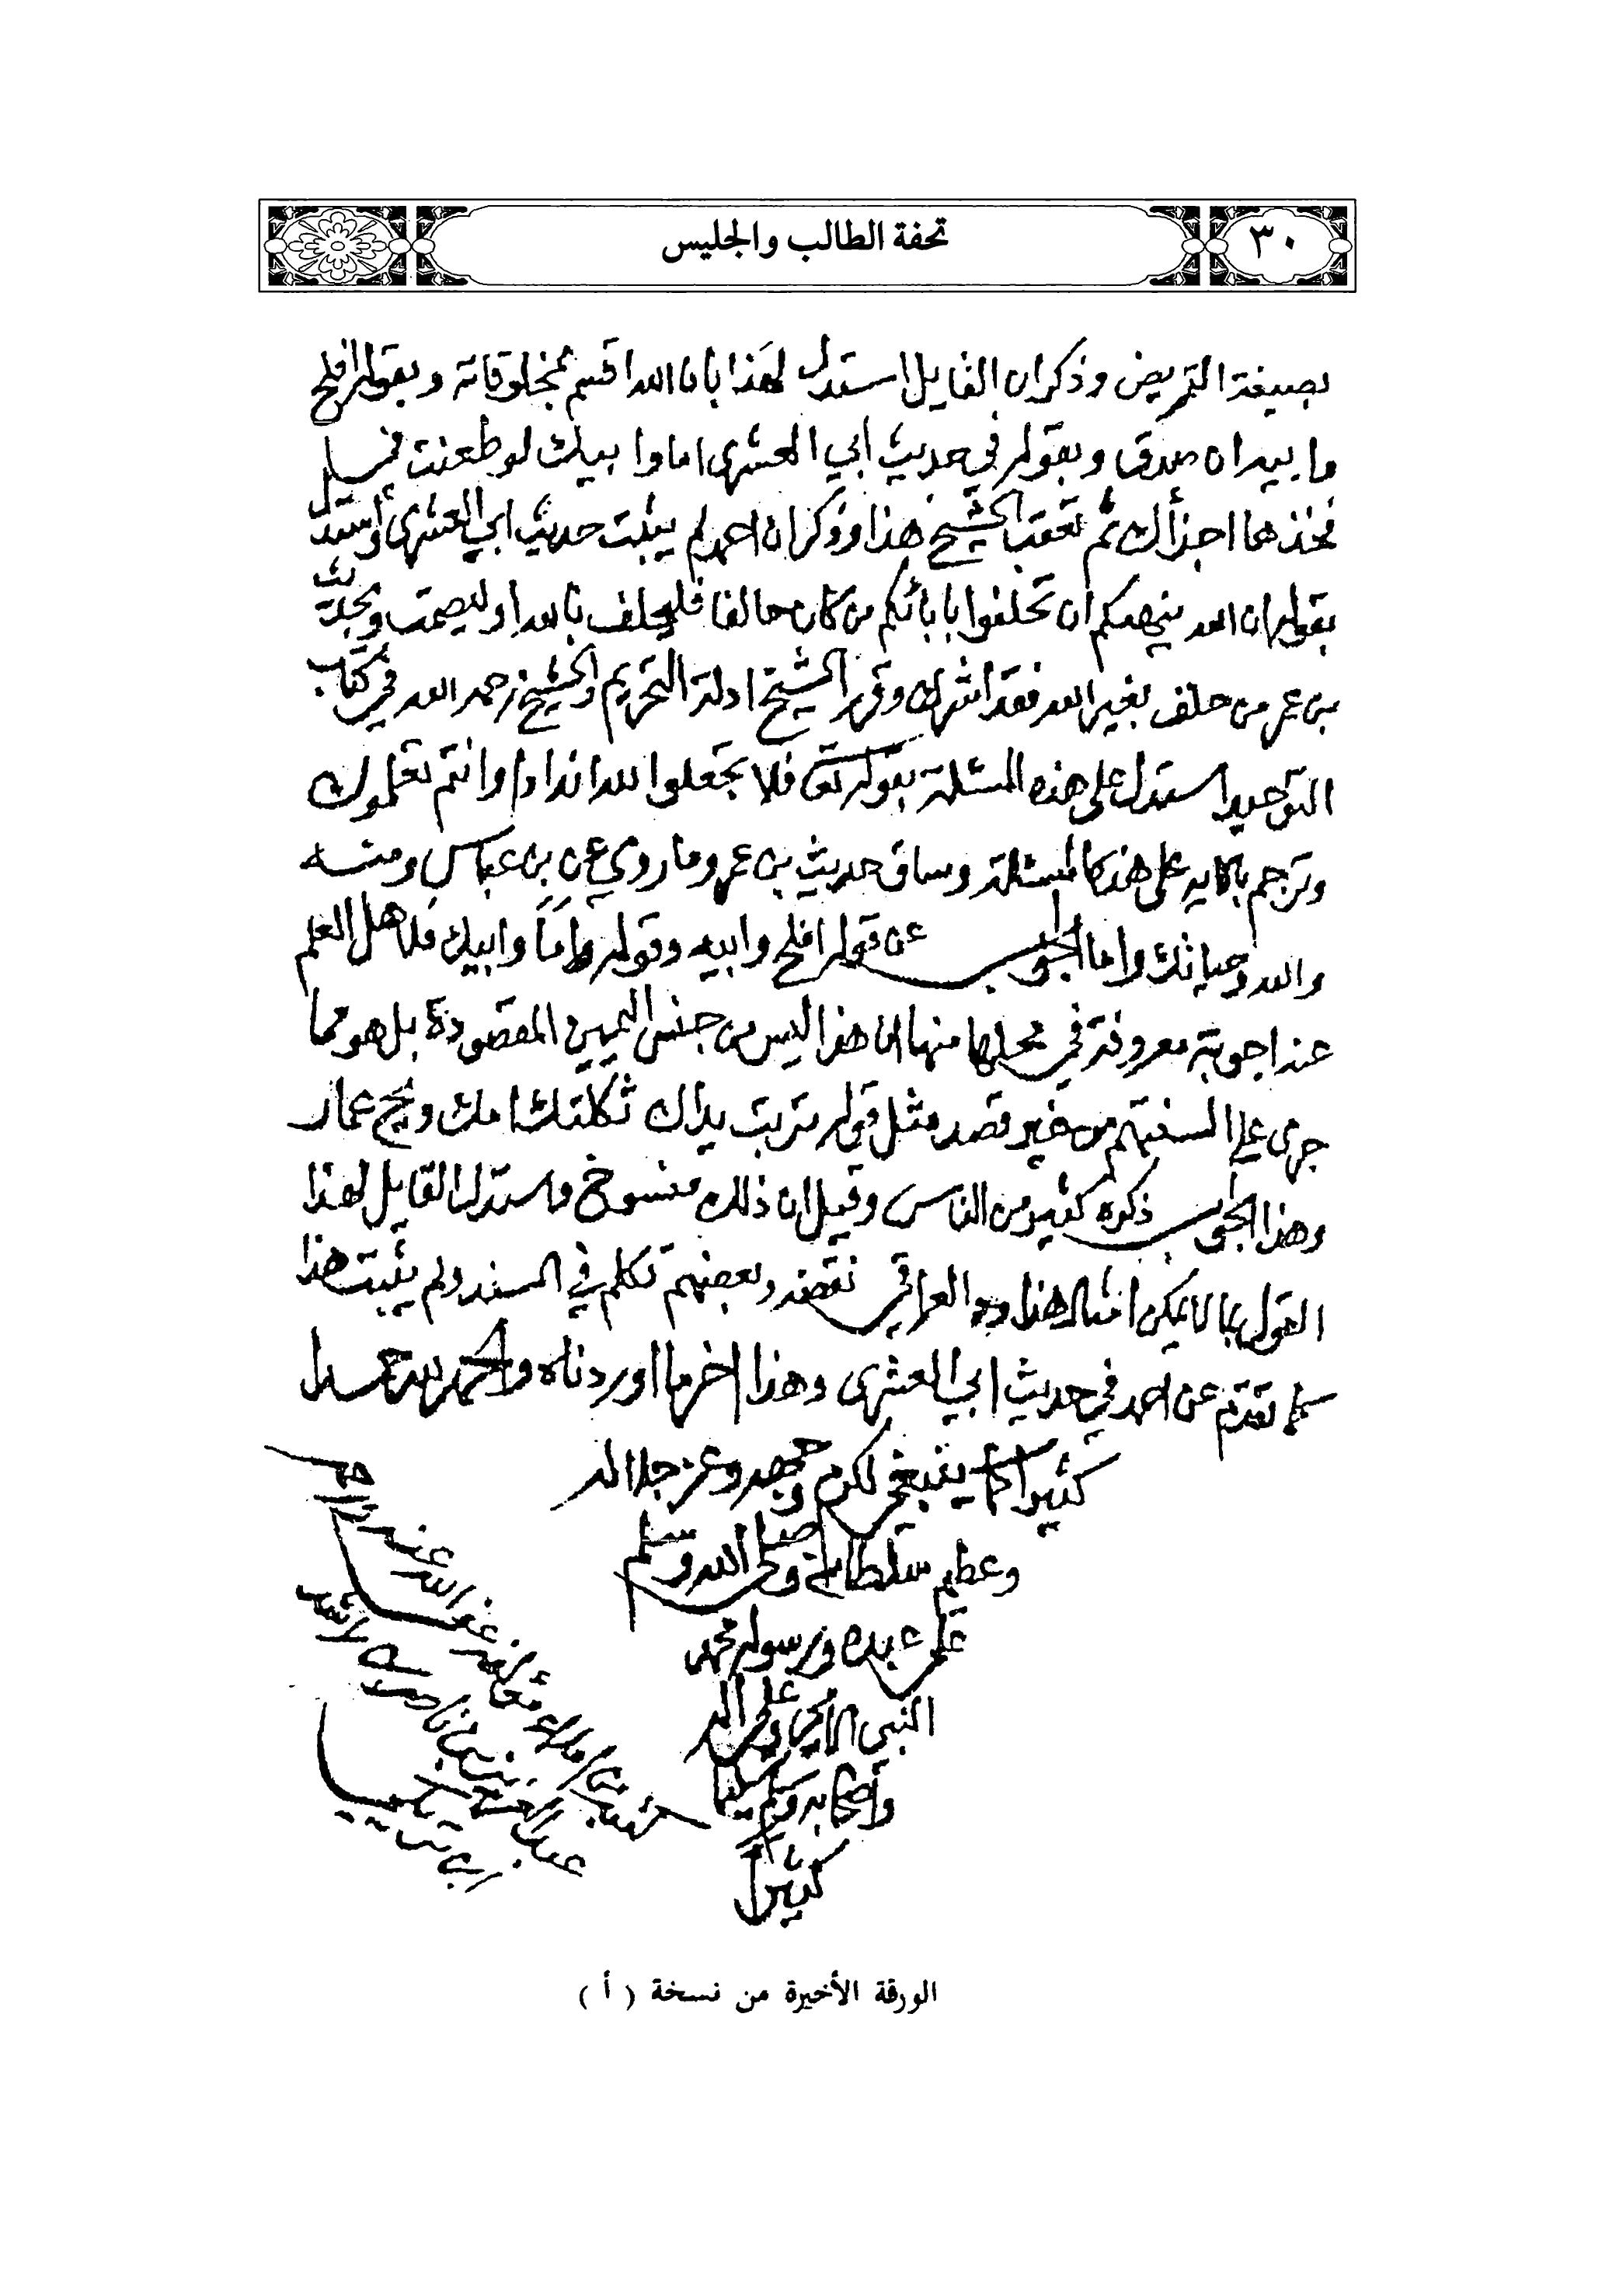 ٣٠
تحفة الطالب والجليس
بصيغة التمريض وذكر ان القايل استدل لهذا بان الله اقسم بمخلوقاته وبقوله افلح
وابيه ان صدق وبقوله في حديث ابي العشرى اما وابيك لو طعنت في
فخذها اجزأك ثم تعقب الشيخ هذا وذكر ان احمد لم يثبت حديث ابي العشرى واستدل
بقوله ان الله ينهىكم ان تحلفوا بابائكم من كان حالفا فليحلف بالله او ليصمت وبحديث
بن عمر من حلف بغير الله فقد اشرك وقرر الشيخ ادلة التحريم والشيخ رحمه الله في كتاب
التوحيد استدل على هذه المسئلة بقوله تعالى فلا تجعلوا لله اندادا وانتم تعلمون
وترجم بالايه على هذه المسئلة وساق حديث بن عمر وما روي عن بن عباس ومنه
والله وحياتك واما الجواب عن قوله افلح وابيه وقوله اما وابيك فلاهل العلم
عنه اجوبة معروفة في محلها منها ان هذا ليس من جنس اليمين المقصودة بل هو مما
جرى على السنتهم من غير قصد مثل قوله تربت يداك ثكلتك امك ويح عمار
وهذا الجواب ذكره كثير من الناس وقيل ان ذلك منسوخ واستدل القايل لهذا
القول بما لا يمكن امثاله هذا والعراقي نقضه وبعضهم تكلم في السند ولم يثبت هذا
كما تقدم عن احمد في حديث ابي العشرى وهذا اخر ما اوردناه والحمد لله حمدا
كثيرا كما ينبغي لكرم وجهه وعز جلاله
وعظيم سلطانه وصلى الله وسلم
على عبده ورسوله محمد
النبي الامي وعلى اله
واصحابه وسلم تسليما
كثيرا
الورقة الأخيرة من نسخة ( أ )